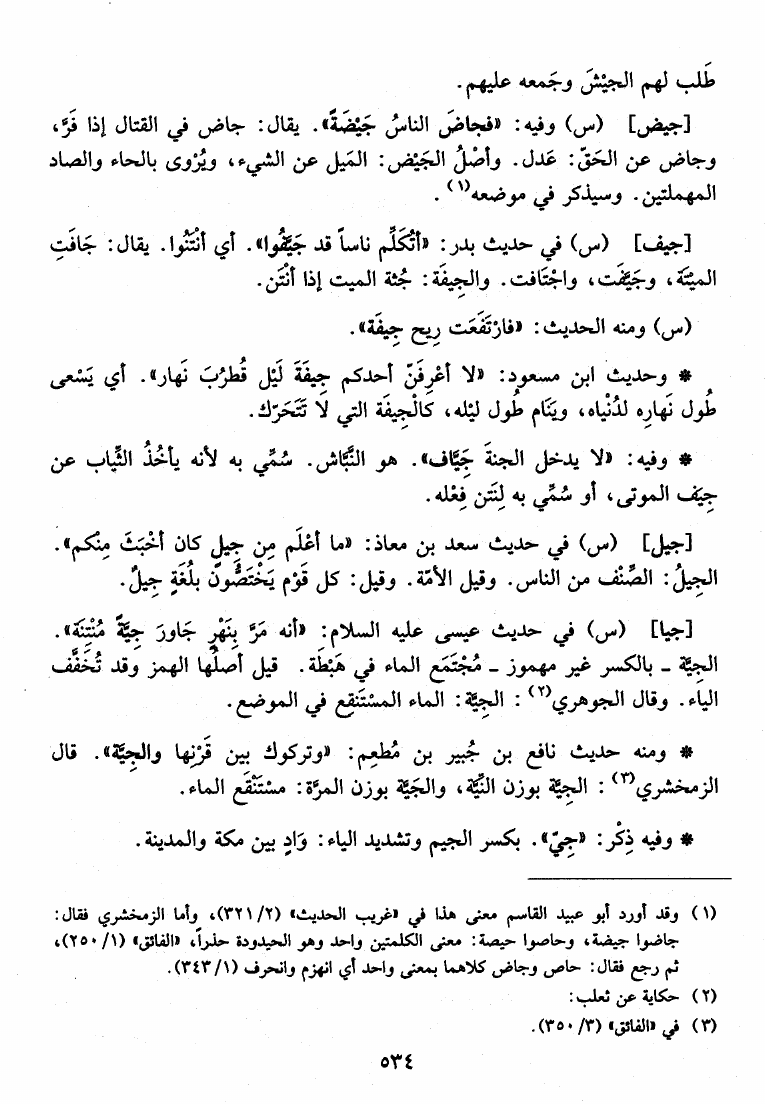 طَلب لهم الجيْشَ وجَمعه عليهم.
[جيض] (س) وفيه: «فجاضَ الناسُ جَيْضَةً». يقال: جاض في القتال إذا فَرَّ،
وجاض عن الحَقّ: عَدل. وأصْلُ الجَيْض: المَيل عن الشيء، ويُرْوى بالحاء والصاد
المهملتين. وسيذكر في موضعه(١).
[جيف] (س) في حديث بدر: «أتُكَلِّم ناساً قد جَيَّفُوا». أي أنْتَنُوا. يقال: جَافَتِ
المَيْتَة، وجَيَّفَت، واجْتَافت. والجِيفَة: جُثة الميت إذا أنْتَن.
(س) ومنه الحديث: «فارْتَفَعَت رِيح جِيفَة».
* وحديث ابن مسعود: «لا أعْرِفَنّ أحدكم جِيفَةَ لَيْل قُطرُبَ نَهار». أي يَسْعى
طُول نَهاره لدُنْياه، ويَنَام طُول ليْله، كالْجِيفَة التي لا تَتَحَرّك.
* وفيه: «لا يدخل الجنةَ جَيَّاف». هو النَّبَّاش. سُمِّي به لأنه يأخُذُ الثِّياب عن
جِيَف الموتى، أو سُمِّي به لِنَتن فِعْله.
[جيل] (س) في حديث سعد بن معاذ: «ما أعْلَم مِن جِيلٍ كان أخْبَثَ مِنْكم».
الجِيلُ: الصِّنْف من الناس. وقيل الأمّة. وقيل: كل قَوْم يَخْتَصُّونَ بلُغَةٍ جِيلٌ.
[جيا] (س) في حديث عيسى عليه السلام: «أنه مَرَّ بِنَهْرٍ جَاورَ جِيَّةً مُنْتِنَة».
الجيَّة ـ بالكسر غير مهموز ـ مُجْتَمَع الماء في هَبْطَة. قيل أصلُها الهمز وقد تُخَفَّف
الياء. وقال الجوهري(٢): الجِيَّة: الماء المسْتَنقِع في الموضع.
* ومنه حديث نافع بن جُبير بن مُطعِم: «وتركوك بين قَرْنِها والجِيَّة». قال
الزمخشري(٣): الجِيَّة بوزن النِّيَّة، والجَيَّة بوزن المرَّة: مسْتَنْقَع الماء.
* وفيه ذِكْر: «جِيّ». بكسر الجيم وتشديد الياء: وَادٍ بين مكة والمدينة.
(١) وقد أورد أبو عبيد القاسم معنى هذا في «غريب الحديث» (٣٢١/٢)، وأما الزمخشري فقال:
جاضوا جيضة، وحاصوا حيصة: معنى الكلمتين واحد وهو الحيدودة حذراً، «الفائق» (٢٥٠/١)،
ثم رجع فقال: حاص وجاض كلاهما بمعنى واحد أي انهزم وانحرف (٣٤٣/١).
(٢) حكاية عن ثعلب:
(٣) في «الفائق» (٣٥٠/٣).
٥٣٤